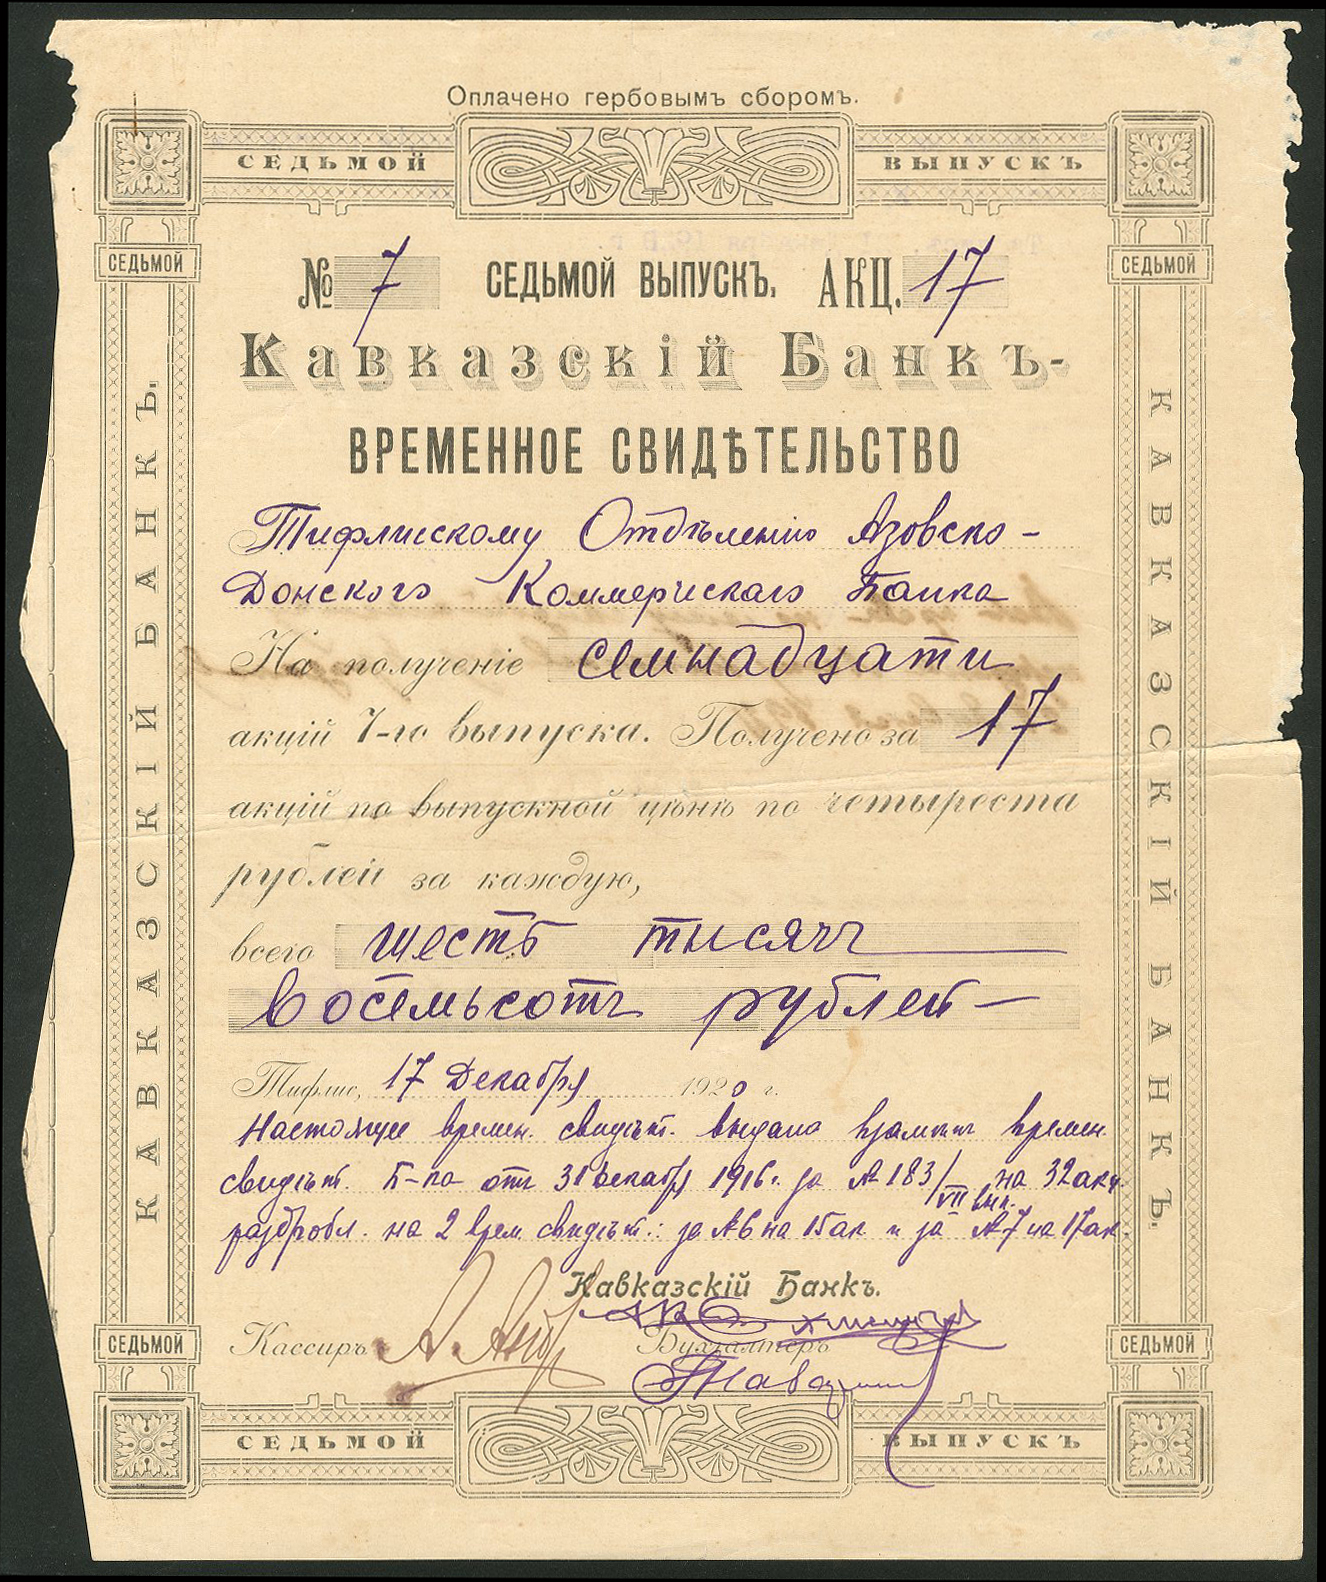 Оплачено гербовымъ сборомъ.
СЕДЬМОЙ ВЫПУСКЪ
СЕДЬМОЙ СЕДЬМОЙ
№ 7 СЕДЬМОЙ ВЫПУСКЪ. АКЦ. 17
Кавказскій Банкъ-
ВРЕМЕННОЕ СВИДѢТЕЛЬСТВО
Тифлисскому Отдѣленію Азовско-
Донского Коммерческаго Банка
На полученіе семнадцати
акцій 7-го выпуска. Получено за 17
акцій по выпускной цѣнѣ по четыреста
рублей за каждую,
всего шесть тысячъ
восемьсотъ рублей
Тифлис, 17 Декабря 1920 г.
Настоящее времен. свидѣт. выдано взамѣнъ времен.
свидѣт. Б-ка отъ 31 декабря 1916 г. за № 183/VII вып. на 32 акц.
раздробл. на 2 врем. свидѣт.: за №6 на 15 ак и за №7 на 17 ак.
Кавказскій Банкъ.
Кассиръ Бухгалтеръ
СЕДЬМОЙ СЕДЬМОЙ
СЕДЬМОЙ ВЫПУСКЪ
КАВКАЗСКІЙ БАНКЪ.
КАВКАЗСКІЙ БАНКЪ.